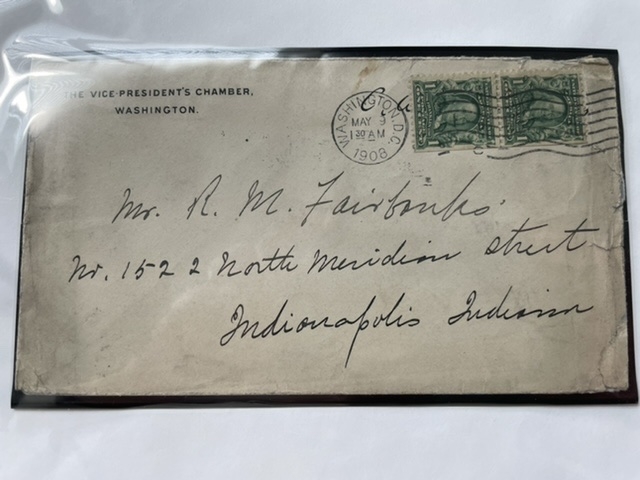 THE VICE-PRESIDENT'S CHAMBER,
WASHINGTON.
WASHINGTON, D.C.
MAY 9
1 30 AM
1908
Mr. R. M. Fairbanks
Nr. 1522 North Meridian street
Indianapolis Indiana